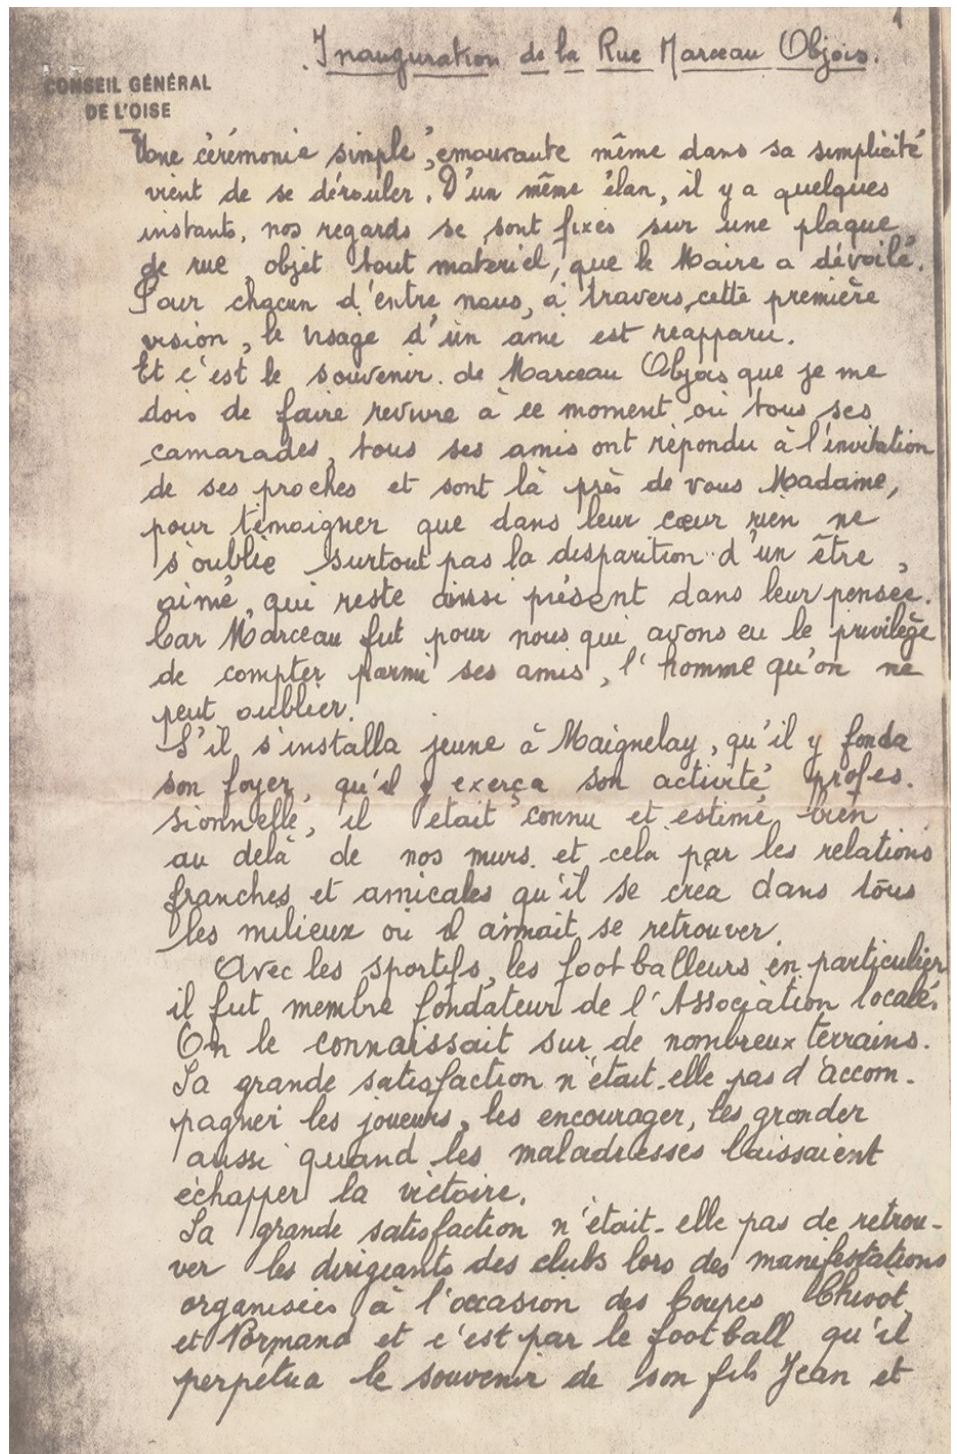 1
Inauguration de la Rue Marceau Objois.
CONSEIL GÉNÉRAL
DE L'OISE
Une cérémonie simple, émouvante même dans sa simplicité
vient de se dérouler. D'un même élan, il y a quelques
instants, nos regards se sont fixés sur une plaque
de rue, objet tout matériel, que le Maire a dévoilé.
Pour chacun d'entre nous, à travers cette première
vision, le visage d'un ami est réapparu.
Et c'est le souvenir de Marceau Objois que je me
dois de faire revivre à ce moment où tous ses
camarades, tous ses amis ont répondu à l'invitation
de ses proches et sont là près de vous Madame,
pour témoigner que dans leur cœur rien ne
s'oublie surtout pas la disparition d'un être
aimé, qui reste aussi présent dans leur pensée.
Car Marceau fut pour nous qui avons eu le privilège
de compter parmi ses amis, l'homme qu'on ne
peut oublier.
S'il s'installa jeune à Maignelay, qu'il y fonda
son foyer, qu'il y exerça son activité profes-
sionnelle, il était connu et estimé bien
au delà de nos murs et cela par les relations
franches et amicales qu'il se créa dans tous
les milieux où il aimait se retrouver.
Avec les sportifs, les footballeurs en particulier
il fut membre fondateur de l'Association locale.
On le connaissait sur de nombreux terrains.
Sa grande satisfaction n'était-elle pas d'accom-
pagner les joueurs, les encourager, les gronder
aussi quand les maladresses laissaient
échapper la victoire.
Sa grande satisfaction n'était-elle pas de retrou-
ver les dirigeants des clubs lors des manifestations
organisées à l'occasion des Coupes Chivot
et Normand et c'est par le football qu'il
perpétua le souvenir de son fils Jean et